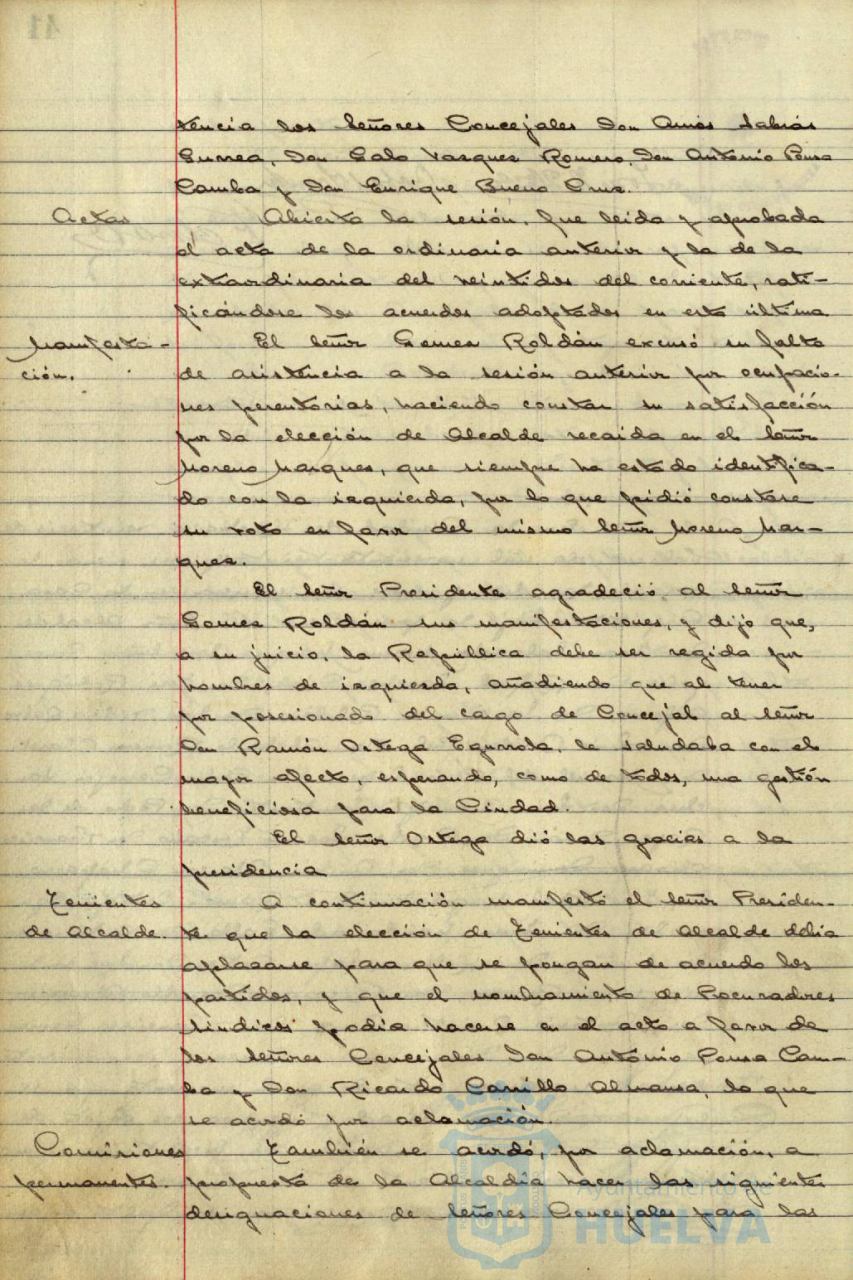 tencia los Señores Concejales Don Amós Sabrás
Gurrea, Don Galo Vazquez Romero, Don Antonio Pousa
Camba y Don Enrique Bueno Cruz.
Actas
Abierta la sesión, fue leida y aprobada
el acta de la ordinaria anterior y la de la
extraordinaria del veintidos del corriente, rati-
ficándose los acuerdos adoptados en esta última
Manifesta-
ción.
El Señor Gomez Roldán excusó su falta
de asistencia a la sesión anterior por ocupacio-
nes perentorias, haciendo constar su satisfacción
por la elección de Alcalde recaida en el Señor
Moreno Marquez, que siempre ha estado identifica-
do con la izquierda, por lo que pidió constase
su voto en favor del mismo Señor Moreno Mar-
quez.
El Señor Presidente agradeció al Señor
Gomez Roldán sus manifestaciones, y dijo que,
a su juicio, la República debe ser regida por
hombres de izquierda, añadiendo que al tener
por posesionado del cargo de Concejal al Señor
Don Ramón Ortega Egurrola, le saludaba con el
mayor afecto, esperando, como de todos, una gestión
beneficiosa para la Ciudad.
El Señor Ortega dió las gracias a la
presidencia
Tenientes
de Alcalde.
A continuación manifestó el Señor Presiden-
te que la elección de Tenientes de Alcalde debia
aplazarse para que se pongan de acuerdo los
partidos, y que el nombramiento de Procuradores
Sindicos podia hacerse en el acto a favor de
los Señores Concejales Don Antonio Pousa Cam-
ba y Don Ricardo Carrillo Almansa, lo que
se acordó por aclamación.
Comisiones
permanentes.
También se acordó, por aclamación, a
propuesta de la Alcaldia hacer las siguientes
designaciones de Señores Concejales para las
Ayuntamiento
HUELVA